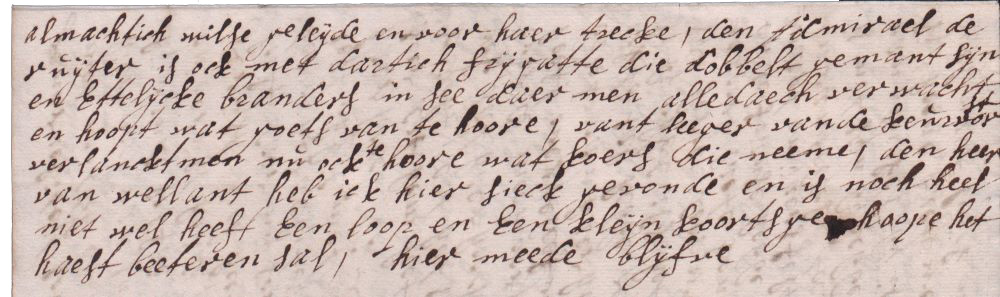 almachtich wilse geleyde en voor haer trecke, den admirael de
ruyter is ock met dartich frygatte die dobbelt gemant syn
en Ettelycke branders in see daer men alledaech verwacht
en hoopt wat goets van te hoore, vant leger vande keurvorst
verlancktmen nu ock te hoore wat koers die neeme, den heer
van wellant heb ick hier sieck gevonde en is noch heel
niet wel heeft Een loop en Een kleyn koortsye hoope het
haest beeteren sal, hier meede blyfve